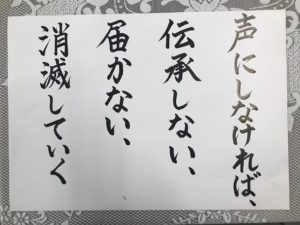 声にしなければ、
伝承しない、
届かない、
消滅していく